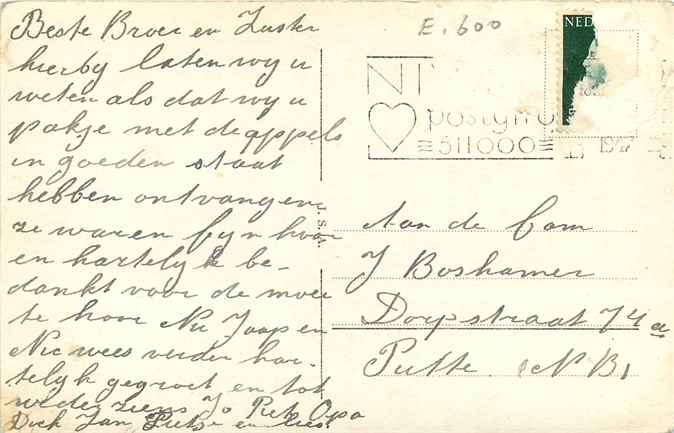 Beste Broer en Zuster
hierby laten wy u
weten als dat wy u
pakje met de appels
in goeden staat
hebben ontvangen
ze waren fyn hoor
en hartelyk be-
dankt voor de moei
te hoor Nu Jaap en
Nic wees verder har-
telyk gegroet en tot
wederziens Jo Piet Opa
Dick Jan Pietje en
E. 600
NED
NT
postgiro
511000
Aan de Fam
J Boshamer
Dorpstraat 74a
Putte (N B)